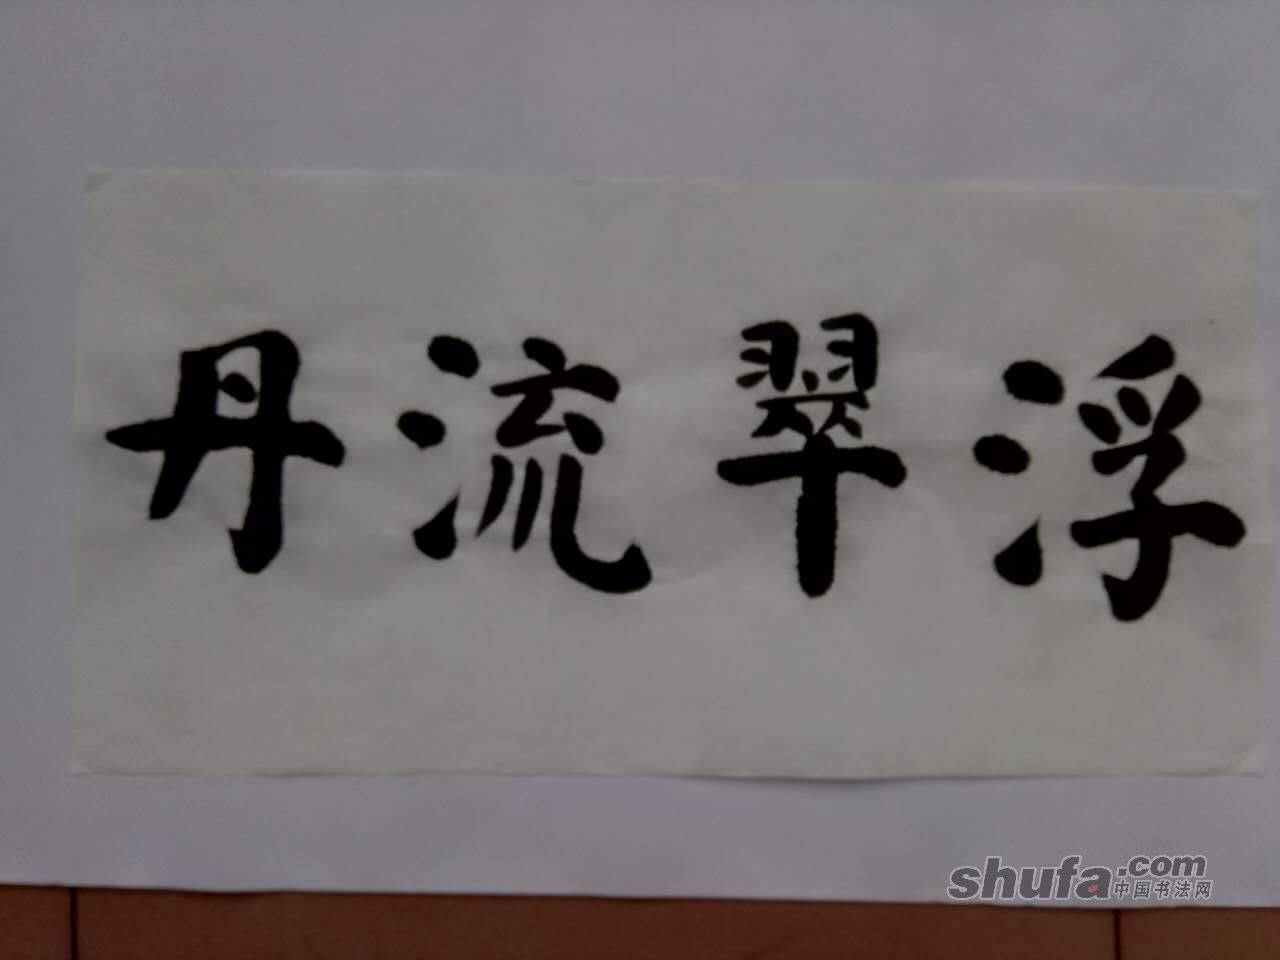 浮翠流丹
shufa.com
中国书法网